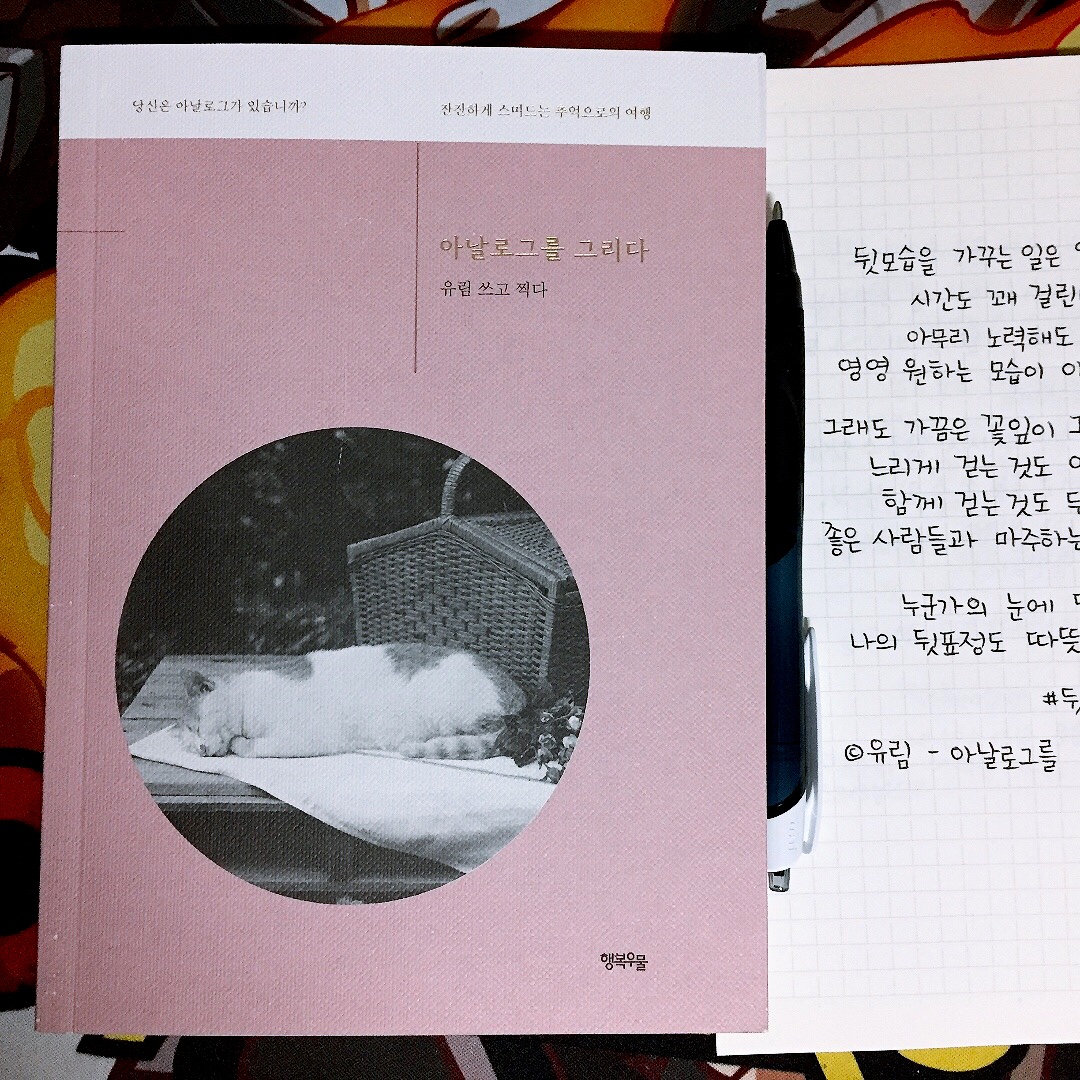 당신은 아날로그가 있습니까?
잔잔하게 스며드는 추억으로의 여행
아날로그를 그리다
유림 쓰고 찍다
행복우물
뒷모습을 가꾸는 일은
시간도 꽤 걸린
아무리 노력해도
영영 원하는 모습이
그래도 가끔은 꽃잎이
느리게 걷는 것도
함께 걷는 것도
좋은 사람들과 마주하는
누군가의 눈에
나의 뒷표정도 따뜻
#뒷
©유림 - 아날로그를